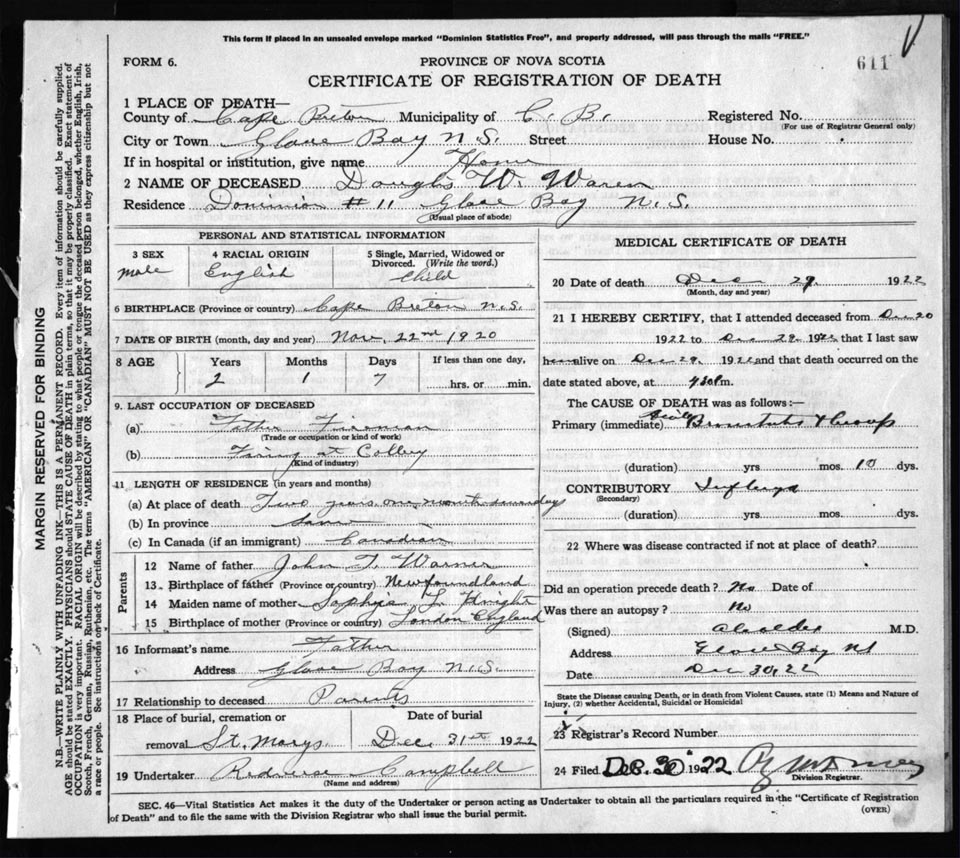 This form if placed in an unsealed envelope marked "Dominion Statistics Free", and properly addressed, will pass through the mails "FREE."
FORM 6.
PROVINCE OF NOVA SCOTIA
611
CERTIFICATE OF REGISTRATION OF DEATH
1 PLACE OF DEATH—
County of Cape Breton Municipality of C. B. Registered No.
(For use of Registrar General only)
City or Town Glace Bay N.S. Street House No.
If in hospital or institution, give name Home
2 NAME OF DECEASED Douglas W. Waren
Residence Dominion # 11 Glace Bay N.S.
(Usual place of abode)
PERSONAL AND STATISTICAL INFORMATION
3 SEX 4 RACIAL ORIGIN 5 Single, Married, Widowed or Divorced. (Write the word.)
male English Child
6 BIRTHPLACE (Province or country) Cape Breton N.S.
7 DATE OF BIRTH (month, day and year) Nov. 22nd 1920
8 AGE Years Months Days If less than one day,
2 1 7 hrs. or min.
9. LAST OCCUPATION OF DECEASED
(a) Father Fireman
(Trade or occupation or kind of work)
(b) Firing at
(Kind of industry)
11 LENGTH OF RESIDENCE (in years and months)
(a) At place of death Two years one month
(b) In province same
(c) In Canada (if an immigrant) Canadian
Parents
12 Name of father John T. Warner
13 Birthplace of father (Province or country) Newfoundland
14 Maiden name of mother Sophie L. Knight
15 Birthplace of mother (Province or country) London England
16 Informant's name Father
Address Glace Bay N.S.
17 Relationship to deceased Parents
18 Place of burial, cremation or removal St. Marys. Date of burial Dec. 31st 1922
19 Undertaker Campbell
(Name and address)
MEDICAL CERTIFICATE OF DEATH
20 Date of death Dec 29 1922
(Month, day and year)
21 I HEREBY CERTIFY, that I attended deceased from Dec 20
1922 to Dec 29. 1922 that I last saw
h alive on Dec 29. 1922 and that death occurred on
date stated above, at m.
The CAUSE OF DEATH was as follows:—
Primary (immediate)
(duration) yrs. mos. 10 dys.
CONTRIBUTORY
(Secondary)
(duration) yrs. mos. dys.
22 Where was disease contracted if not at place of death?
Did an operation precede death? No Date of
Was there an autopsy? No
(Signed) M.D.
Address Glace Bay NS
Date Dec 30, 22
State the Disease causing Death, or in death from Violent Causes, state (1) Means and Nature of Injury, (2) whether Accidental, Suicidal or Homicidal
23 Registrar's Record Number
24 Filed Dec. 30 1922
Division Registrar.
SEC. 46—Vital Statistics Act makes it the duty of the Undertaker or person acting as Undertaker to obtain all the particulars required in the "Certificate of Registration of Death" and to file the same with the Division Registrar who shall issue the burial permit.
(OVER)
MARGIN RESERVED FOR BINDING
N.B.—WRITE PLAINLY WITH UNFADING INK—THIS IS A PERMANENT RECORD. Every item of information should be carefully supplied.
AGE should be stated EXACTLY. PHYSICIANS should STATE CAUSE OF DEATH in plain terms, so that it may be properly classified. Exact statement of
OCCUPATION is very important. RACIAL ORIGIN will be described by stating to what people or tongue the deceased person belonged, whether English, Irish,
Scotch, French, German, Russian, Ruthenian, etc. The terms "AMERICAN" or "CANADIAN" MUST NOT BE USED as they express citizenship but not
a race or people. See instructions on back of Certificate.